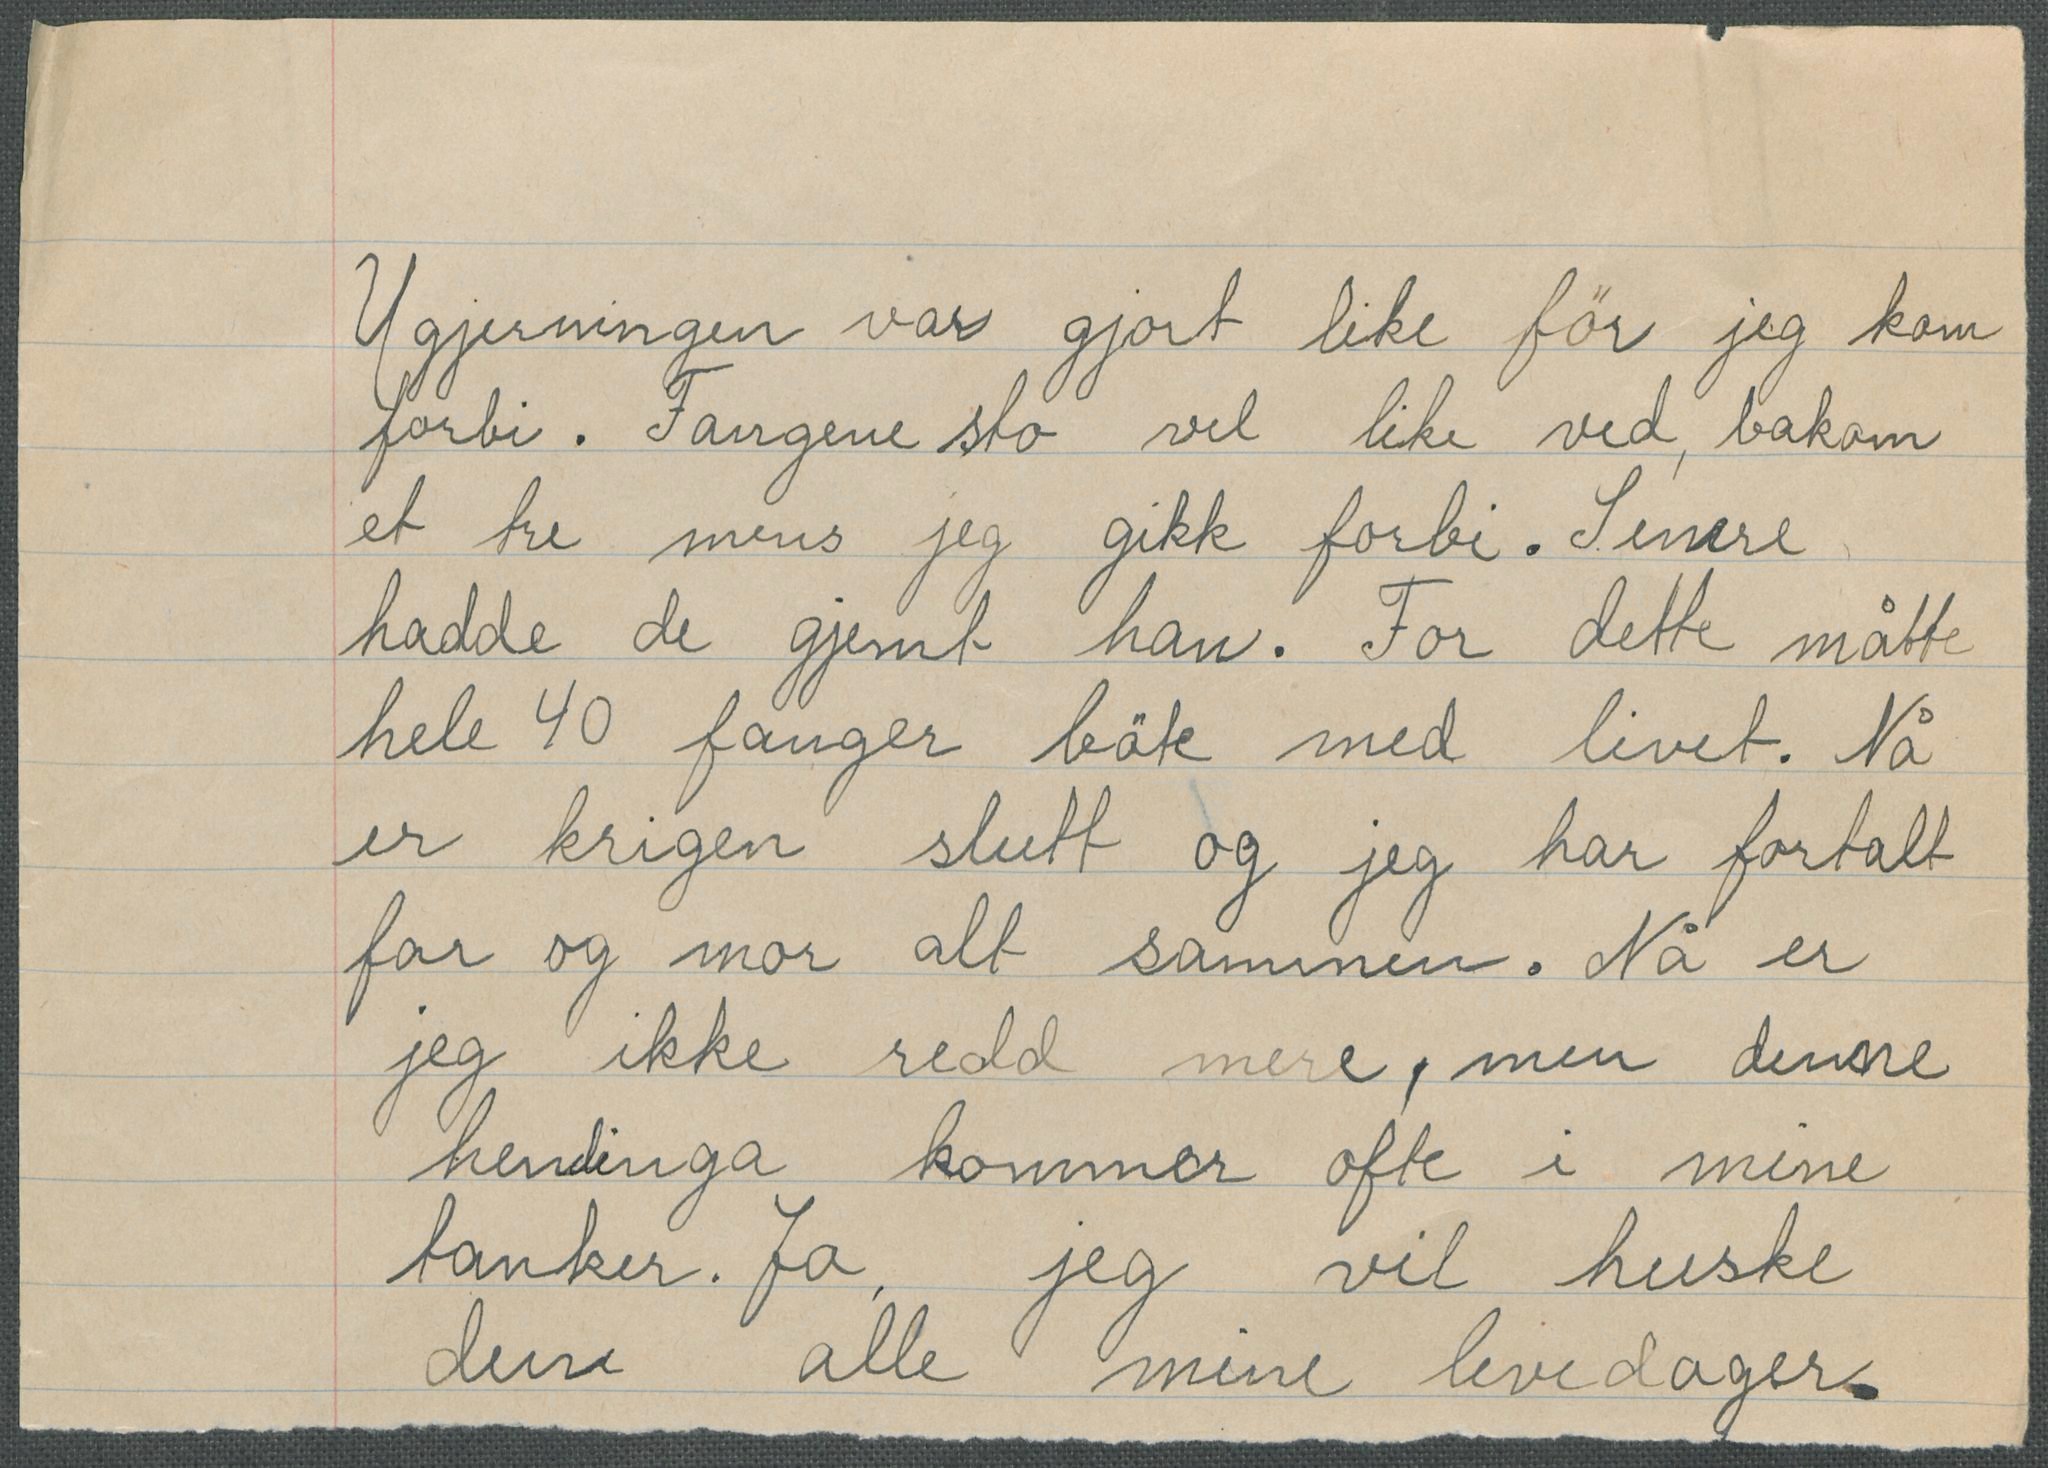 Ugjerningen var gjort like för jeg kom
forbi. Fangene sto vel like ved, bakom
et tre mens jeg gikk forbi. Senere
hadde de gjemt han. For dette måtte
hele 40 fanger böte med livet. Nå
er krigen slutt og jeg har fortalt
far og mor alt sammen. Nå er
jeg ikke redd mere, men denne
hendinga kommer ofte i mine
tanker. Ja, jeg vil huske
den alle mine levedager.